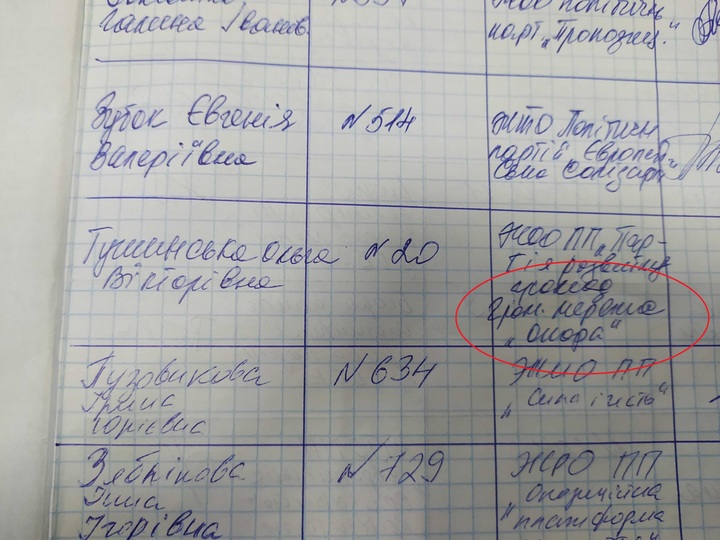 Галина Іванов.
парт. „Пропозиц."
Зубок Євгенія
Валеріївна
№514
ЖТО Політичн
партії Європей-
ська Солідарн
Тушинська Ольга
Вікторівна
№20
ЖОО ПП „Пар-
тія розвитку
громад
Гром. мережа
„Опора"
Пузовикова
Ірина
Юріївна
№634
ЖМО ПП
„Сила і честь"
Зяблікова
Інна
Ігорівна
№729
ЖРО ПП
Опозиційна
платформа